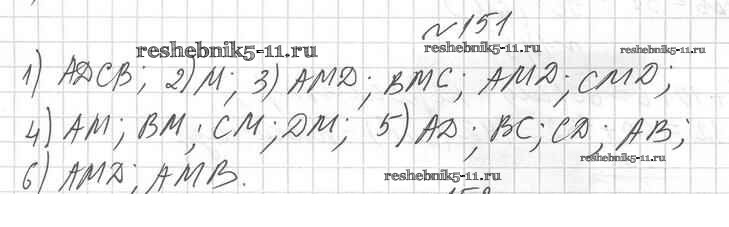 №151
reshebnik5-11.ru
reshebnik5-11.ru
reshebnik5-11.ru
1) ADCB; 2) M; 3) AMD; BMC; AMD; CMD;
4) AM; BM; CM; DM; 5) AD; BC; CD; AB;
reshebnik5-11.ru
6) AMD; AMB.
reshebnik5-11.ru